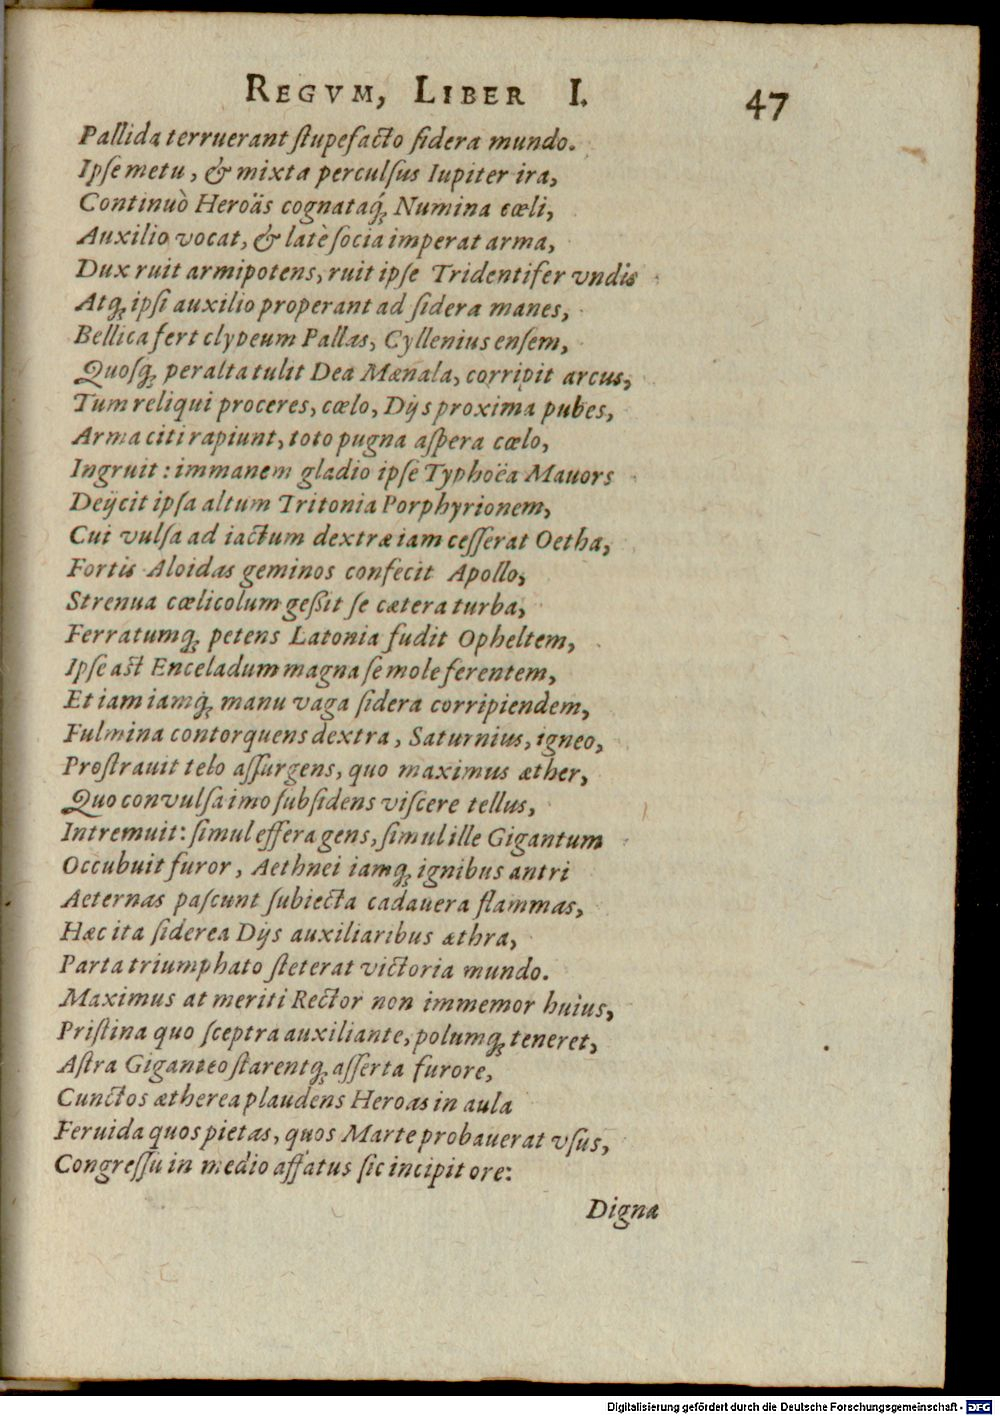 REGVM, LIBER I. 47
Pallida terruerant ſtupefacto ſidera mundo.
Ipſe metu, & mixta perculſus Iupiter ira,
Continuò Heroäs cognataq́ꝫ Numina cœli,
Auxilio vocat, & latè ſocia imperat arma,
Dux ruit armipotens, ruit ipſe Tridentifer vndis
Atqꝫ ipſi auxilio properant ad ſidera manes,
Bellica fert clypeum Pallas, Cyllenius enſem,
Quoſqꝫ per alta tulit Dea Mænala, corripit arcus,
Tum reliqui proceres, cœlo, Dijs proxima pubes,
Arma citi rapiunt, toto pugna aſpera cœlo,
Ingruit: immanem gladio ipſe Typhoëa Mauors
Deijcit ipſa altum Tritonia Porphyrionem,
Cui vulſa ad iactum dextræ iam ceſſerat Oetha,
Fortis Aloidas geminos confecit Apollo,
Strenua cœlicolum geßit ſe cætera turba,
Ferratumqꝫ petens Latonia fudit Opheltem,
Ipſe aſt Enceladum magna ſe mole ferentem,
Et iam iamq́ꝫ manu vaga ſidera corripiendem,
Fulmina contorquens dextra, Saturnius, igneo,
Proſtrauit telo aſſurgens, quo maximus æther,
Quo convulſa imo ſubſidens viſcere tellus,
Intremuit: ſimul effera gens, ſimul ille Gigantum
Occubuit furor, Aethnei iamqꝫ ignibus antri
Aeternas paſcunt ſubiecta cadauera flammas,
Hæc ita ſiderea Dijs auxiliaribus æthra,
Parta triumphato ſteterat victoria mundo.
Maximus at meriti Rector non immemor huius,
Priſtina quo ſceptra auxiliante, polumqꝫ teneret,
Aſtra Giganteo ſtarentqꝫ aſſerta furore,
Cunctos ætherea plaudens Heroas in aula
Feruida quos pietas, quos Marte probauerat vſus,
Congreſſu in medio affatus ſic incipit ore:
Digna
Digitalisierung gefördert durch die Deutsche Forschungsgemeinschaft - DFG